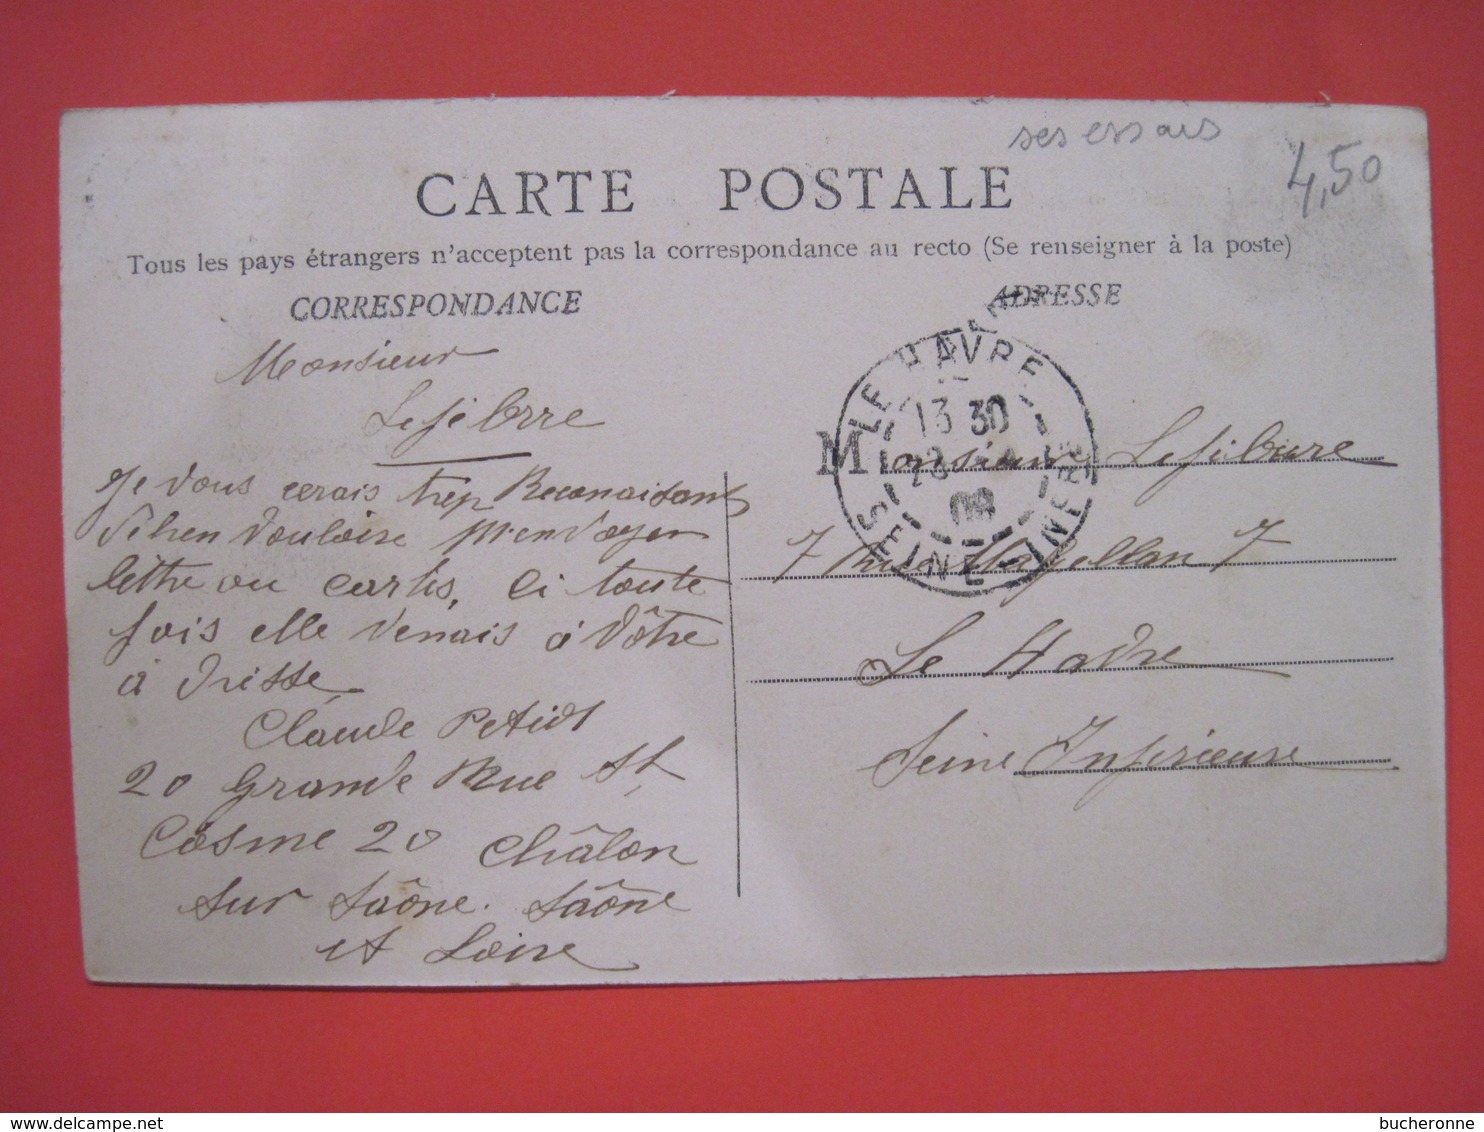 ses essais
4,50
CARTE POSTALE
Tous les pays étrangers n'acceptent pas la correspondance au recto (Se renseigner à la poste)
CORRESPONDANCE
ADRESSE
Monsieur
Lefebvre
Je vous cerais trep Reconaisant
Si bien Vouloire m'envoyer
lettre ou cartes, ci toute
fois elle venais à Vôtre
à drisse
Claude Petiot
20 Grande Rue St
Cosme 20 Châlon
sur Saône. Saône
et Loire
LE HAVRE
13 30
08
SEINE-INFRE
Monsieur Lefebure
7 Rue Magellan 7
Le Havre
Seine Inferieure
bucheronne